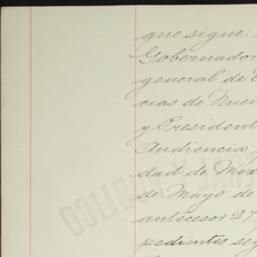 que sigue:
Gobernador
general de
cias de Nuev
y President
Audiencia
dad de Mex
de Mayo de
antecesor 27
pedientes seg